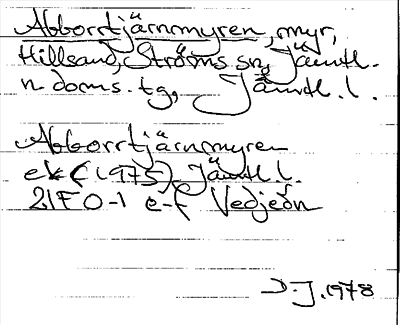 Abborrtjärnmyren, myr,
Hillsand, Ströms sn, Jämtl.
n doms. tg, Jämtl. l.
Abborrtjärnmyren
ek (1975) Jämtl. l.
21F 0-1 e-f Vedjeön
D.J. 1978